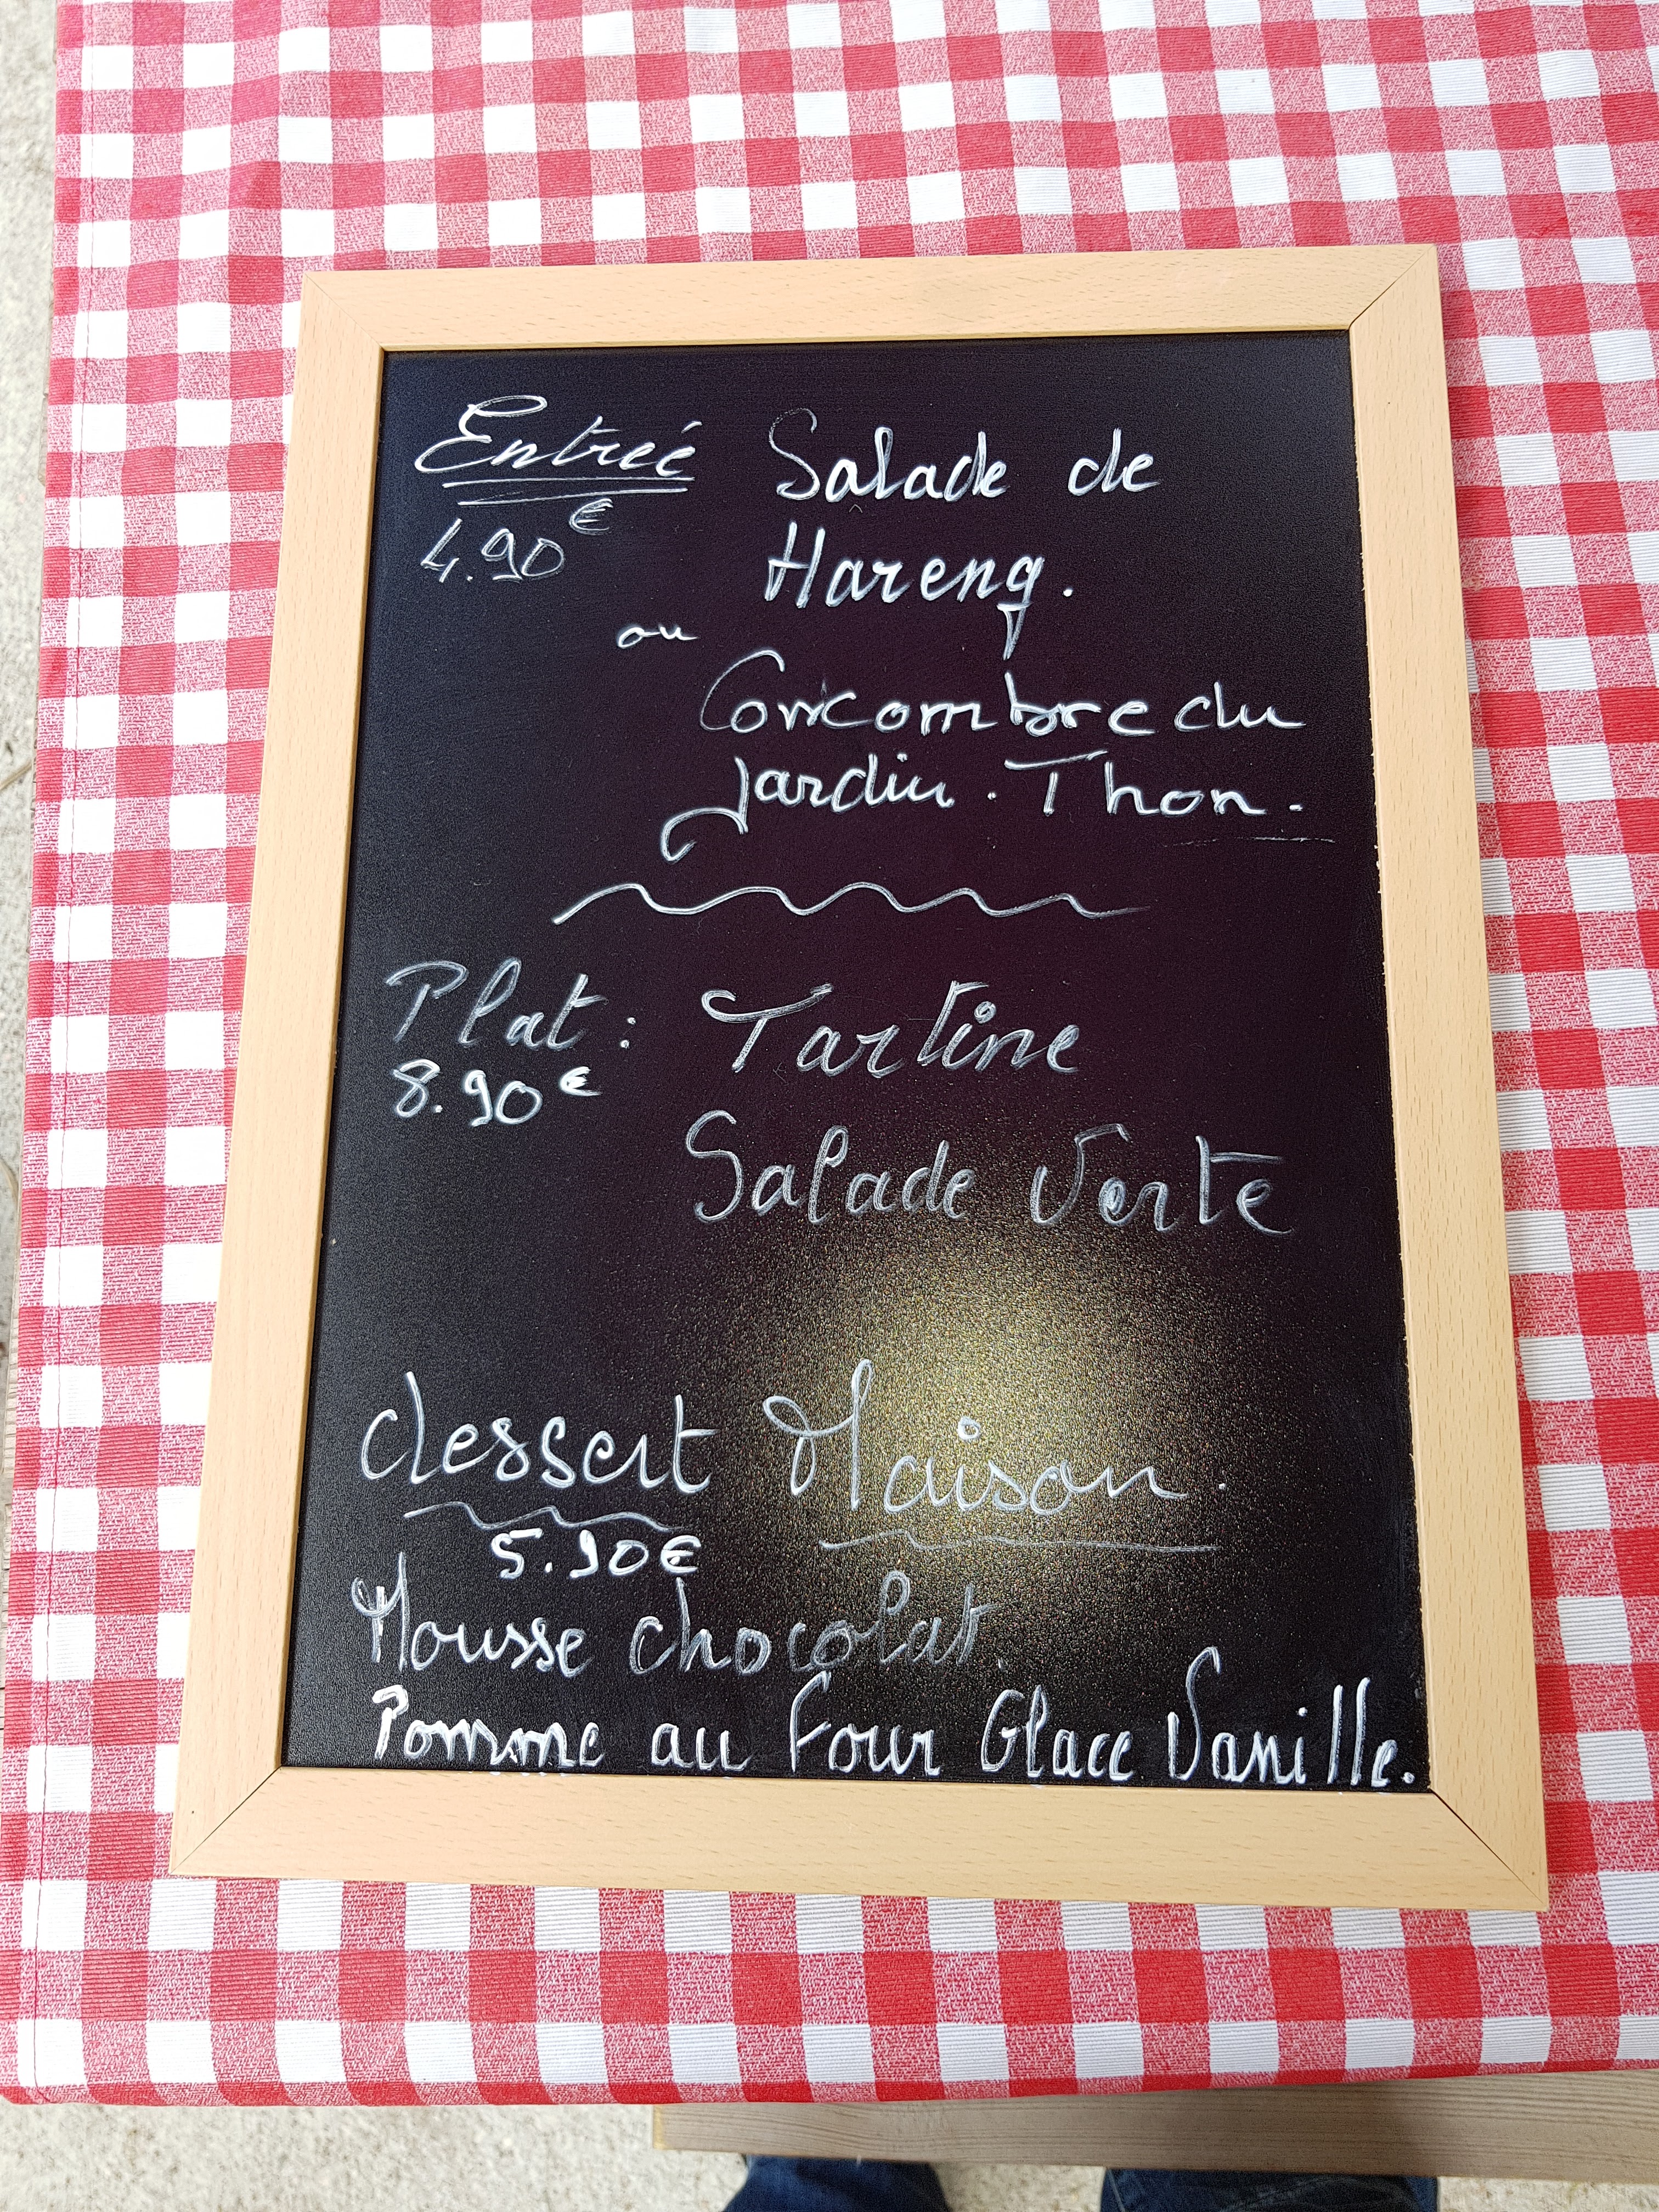 Entrée Salade de
4.90€ Hareng.
ou
Concombre du
jardin. Thon.
Plat: Tartine
8.90€
Salade Verte
dessert Maison.
5.90€
Mousse chocolat.
Pomme au Four Glace Vanille.